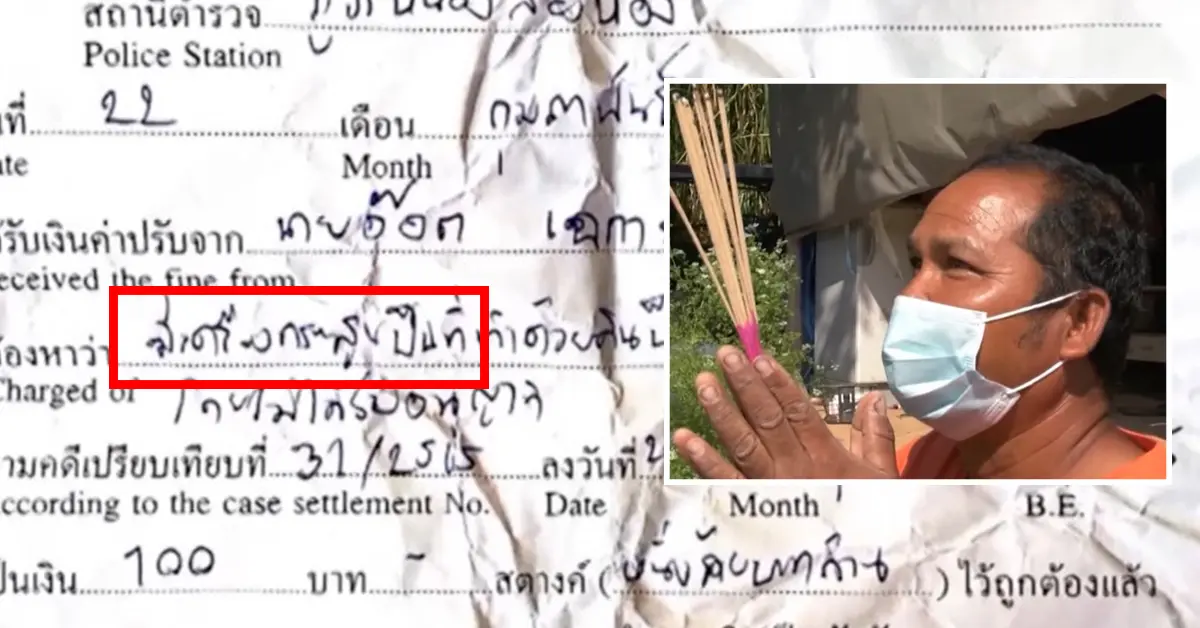 สถานีตำรวจ
Police Station
ที่ 22 เดือน กุมภาพันธ์
Month
รับเงินค่าปรับจาก นายอ๊อด
eceived the fine from
องหาว่า มีเครื่องกระสุนปืนที่ทำด้วยดิน
Charged of โดยไม่ได้รับอนุญาต
ามคดีเปรียบเทียบที่ 31/2565 ลงวันที่ 2
ccording to the case settlement No. Date Month B.E.
ป็นเงิน 100 บาท - สตางค์ (หนึ่งร้อยบาทถ้วน) ไว้ถูกต้องแล้ว